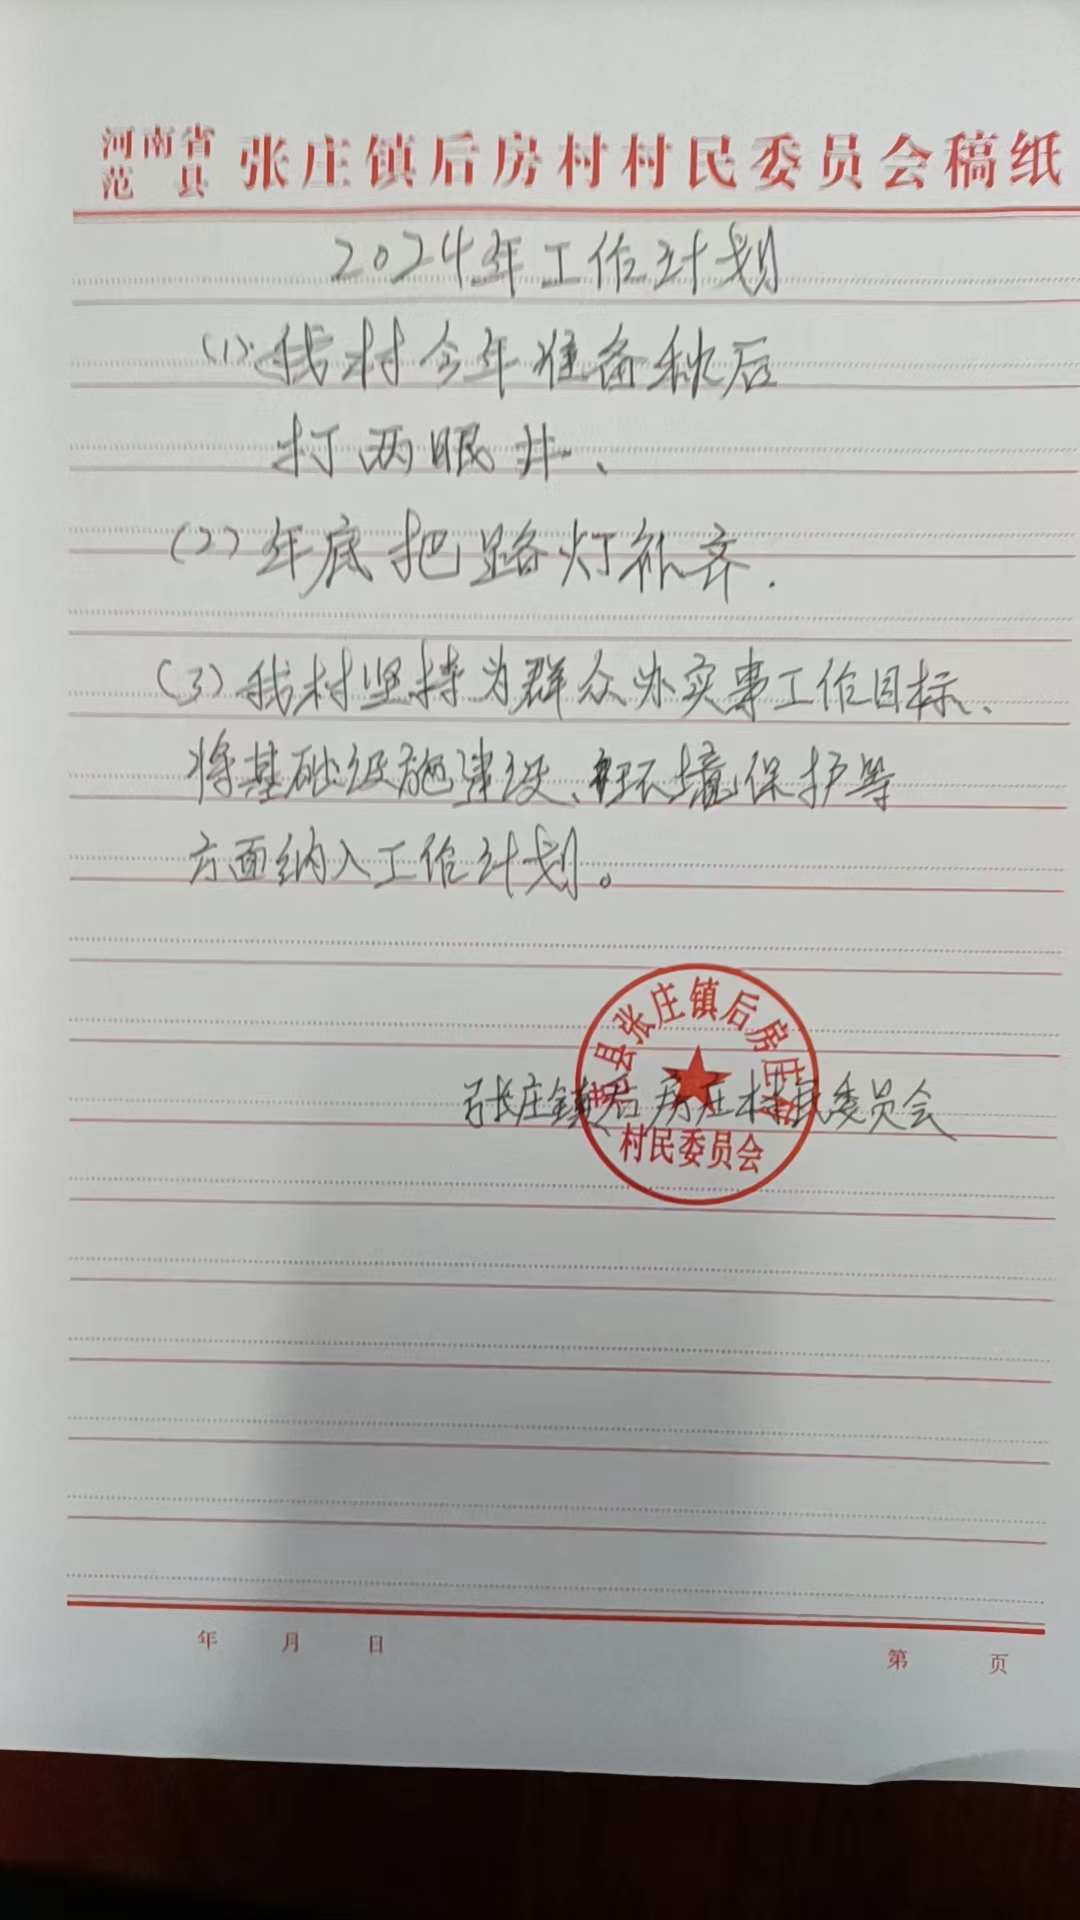 河南省范县 张庄镇后房村村民委员会稿纸
2024年工作计划
(1).我村今年准备秋后
打两眼井、
(2)年底把路灯补齐.
(3)我村坚持为群众办实事工作目标、
将基础设施建设、环境保护等
方面纳入工作计划。
范县张庄镇后房庄村
村民委员会
张庄镇后房庄村民委员会
年 月 日
第 页